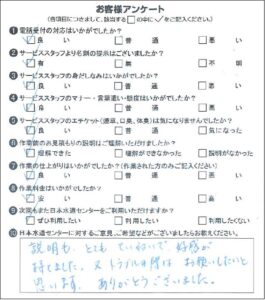 お客様アンケート
(各項目につきまして、該当する□の中に✓をご記入ください。)
❶電話受付の対応はいかがでしたか?
☑良い □普通 □悪い
❷サービススタッフより名刺の提示はございましたか?
☑有 □無 □不明
❸サービススタッフの身だしなみはいかがでしたか?
☑良い □普通 □悪い
❹サービススタッフのマナー・言葉遣い・態度はいかがでしたか?
☑良い □普通 □悪い
❺サービススタッフのエチケット(煙草、口臭、体臭)は気になりませんでしたか?
☑良い □普通 □気になった
❻作業前のお見積もりの説明はご理解いただけましたか?
☑理解できた □理解ができなかった □説明がなかった
❼作業の仕上がりはいかがでしたか?(作業された方のみご記入ください)
☑良い □普通 □悪い
❽作業料金はいかがでしたか?
□安い ☑普通 □高い
❾次回もまた日本水道センターをご利用いただけますか?
☑ぜひ利用したい □利用したい □利用したくない
❿日本水道センターに対するご意見、ご希望などがございましたらお書きください。
説明も、とても ていねいで、好感が
持てました。又 トラブルの際は お願いしたいと
思います。ありがとうございました。